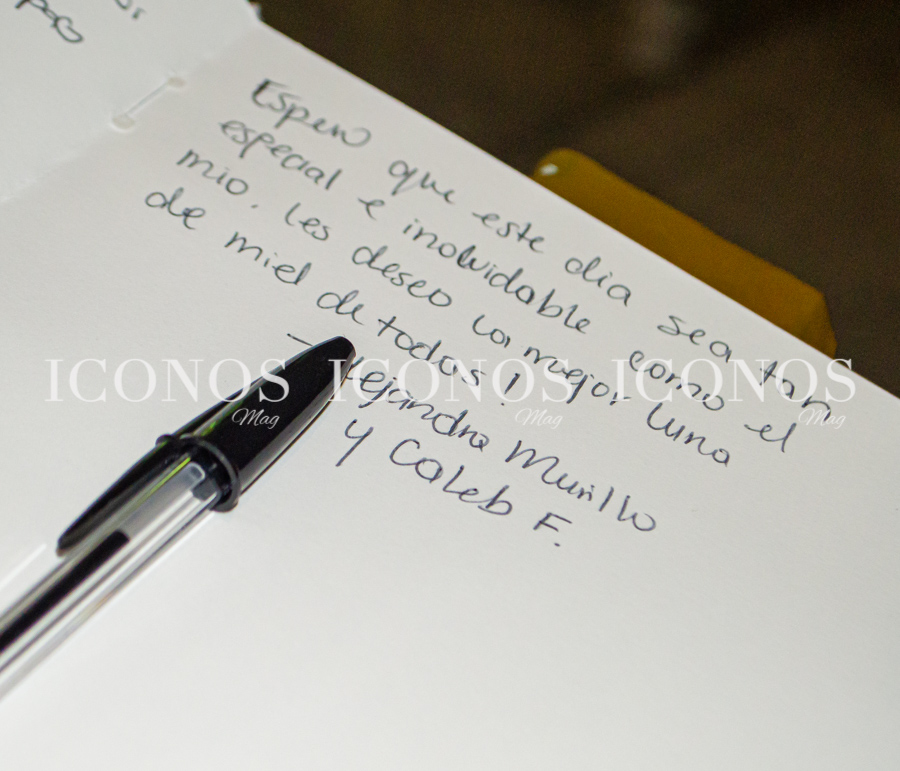 Espero que este dia sea tan
especial e inolvidable como el
mio. les deseo la mejor luna
de miel de todas!
Alejandra Murillo
y Caleb F.
ICONOS ICONOS ICONOS
Mag Mag Mag